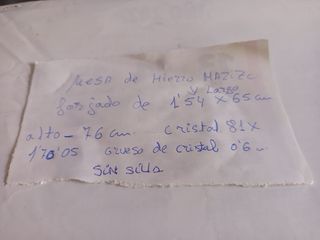 Mesa de Hierro MAZizo
y Largo
forjado de 1'54 x 65 cm
alto - 76 cm cristal 81x
1'70'05 grueso de cristal 0'6 cm
Sin silla